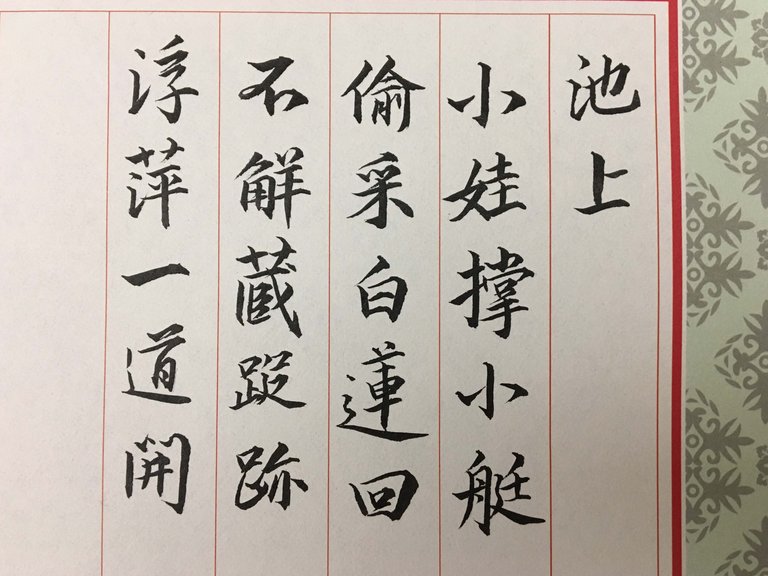 池上
小娃撐小艇
偷采白蓮回
不解蔵蹤跡
浮萍一道開